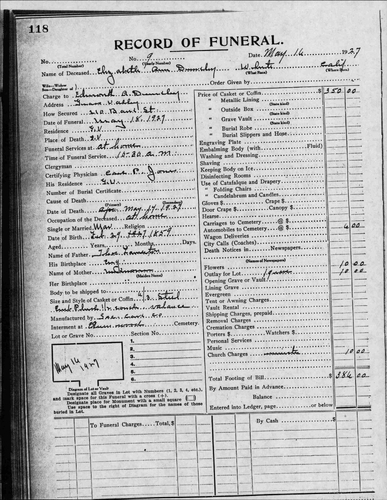 118
RECORD OF FUNERAL.
No. 9 Date May 16 1927
(Total Number) (Yearly Number)
Name of Deceased Elizabeth Ann White Calif
(What Race) (Where Born)
Charge to Edward A.
Order Given by
Address Grass Valley
How Secured 210 Bank St.
Date of Funeral May 18, 1927
Residence G.V.
Place of Death G.V.
Funeral Services at At home
Time of Funeral Service 10-30 a.m.
Clergyman
Certifying Physician Carl P. Jones
His Residence G.V.
Number of Burial Certificate
Cause of Death
Date of Death May 17 1927
Occupation of the Deceased At home
Single or Married Mar. Religion
Date of Birth
Aged Years Months Days
Name of Father
His Birthplace Eng
Name of Mother Unknown
(Maiden Name)
Her Birthplace
Body to be shipped to
Size and Style of Casket or Coffin 6/3 Steel
Manufactured by
Interment at Elmwood Cemetery.
Lot or Grave No. Section No.
May 16 1927
1.
2.
3.
4.
5.
6.
Diagram of Lot or Vault
Designate all Graves in Lot with Numbers (1, 2, 3, 4, etc.), and mark space for this Funeral with a cross (+).
Designate place for Monument with a small square
Use space to the right of Diagram for the names of those buried in Lot.
Price of Casket or Coffin $ 350 00
" Metallic Lining
(State kind)
" Outside Box
(State kind)
" Grave Vault
(State kind)
" Burial Robe
(State kind)
" Burial Slippers and Hose
Engraving Plate
Embalming Body (with Fluid)
Washing and Dressing
Shaving
Keeping Body on Ice
Disinfecting Rooms
Use of Catafalque and Drapery
" Folding Chairs
" Candelabrum and Candles
Gloves $
Door Crape Candy $
Hearse
Carriages to Cemetery @ $
Automobiles to Cemetery @ $ 6 00
Wagon Deliveries
City Calls (Coaches)
Death Notices in Newspapers
(Names of Newspapers)
Flowers 10 00
Outlay for Lot 10 00
Opening Grave or Vault
Lining Grave
Evergreen
Tent or Awning Charges
Vault Rental
Shipping Charges, prepaid
Removal Charges
Cremation Charges
Porters $ Watchers $
Personal Services
Music
Church Charges minister 10 00
Total Footing of Bill $ 386 00
By Amount Paid in Advance
Balance
Entered into Ledger, page or below.
To Funeral Charges $
By Cash $